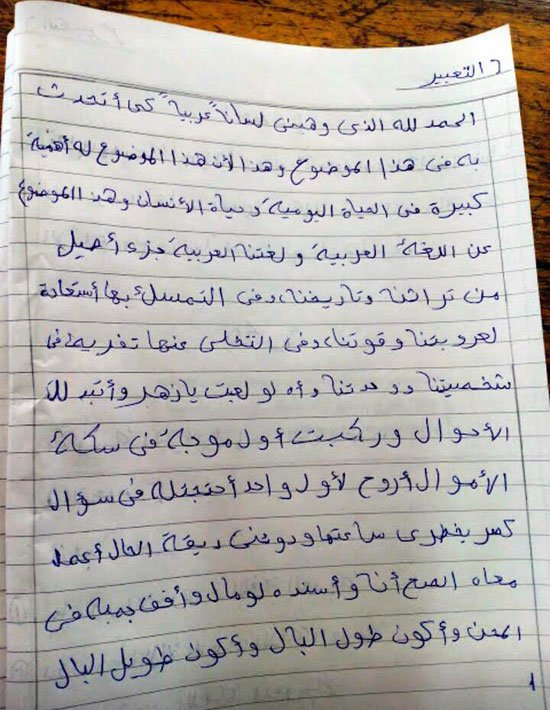 ٦ التعبير
الحمد لله الذى وهبنى لساناً عربياً كى أتحدث
به فى هذا الموضوع وهذا لأن هذا الموضوع له أهمية
كبيرة فى الحياة اليومية وحياة الأنسان وهذا الموضوع
عن اللغة العربية ولغتنا العربية جزء أصيل
من تراثنا وتاريخنا، وفى التمسك بها أستعادة
لعروبتنا وقوتنا، وفى التخلى عنها تفريط فى
شخصيتنا ووحدتنا وأه لو لعبت يا زهر وأتبدلت
الأحوال وركبت أول موجة فى سكة
الأموال أروح لأول واحد أحتجتله فى سؤال
كسر بخطرى ساعتها ودوقنى ديقة الحال أعمل
معاه الصح أنا وأسنده لو مال وأقف جمبه فى
المحن وأكون طول البال وأكون طويل البال
١